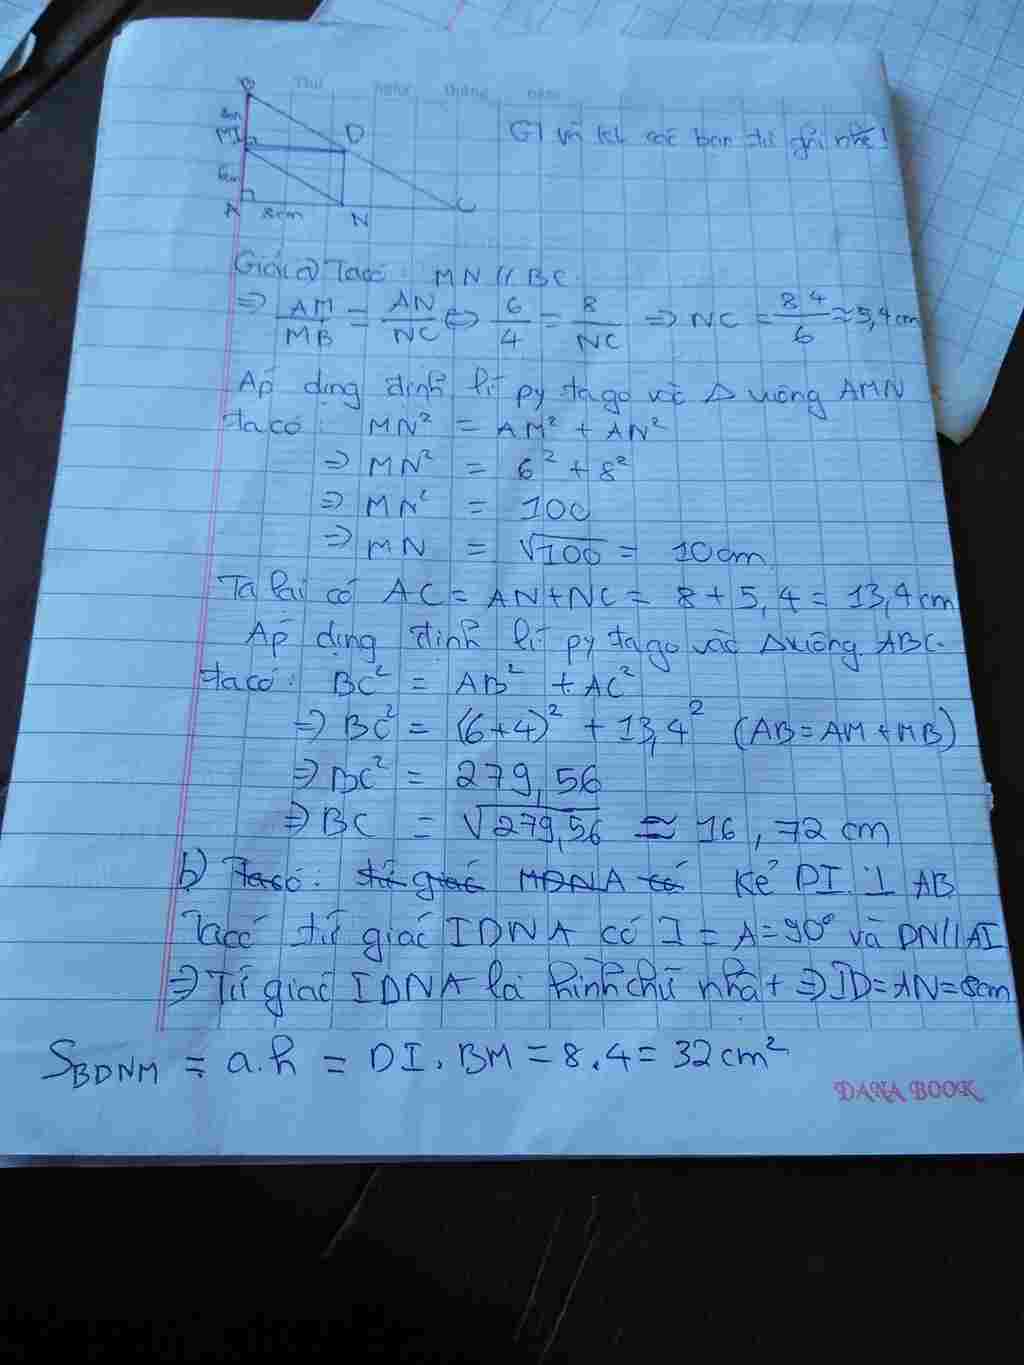 Thứ ngày tháng năm
B
4cm
M I D
6cm
A 8cm N C
GT và KL các bạn tự ghi nhé!
Giải a) Ta có: MN // BC
⇒ AM/MB = AN/NC ⇔ 6/4 = 8/NC ⇒ NC = 8.4/6 ≈ 5,4 cm
Áp dụng định lí py ta go vào Δ vuông AMN
ta có: MN² = AM² + AN²
⇒ MN² = 6² + 8²
⇒ MN² = 100
⇒ MN = √100 = 10cm
Ta lại có AC = AN + NC = 8 + 5,4 = 13,4 cm
Áp dụng định lí py ta go vào Δ vuông ABC.
ta có: BC² = AB² + AC²
⇒ BC² = (6+4)² + 13,4² (AB = AM + MB)
⇒ BC² = 279,56
⇒ BC = √279,56 ≈ 16,72 cm
b) Ta có: tứ giác MDNA có Kẻ DI ⊥ AB
Ta có tứ giác IDNA có I = A = 90° và DN // AI
⇒ Tứ giác IDNA là hình chữ nhật ⇒ ID = AN = 8cm
S BDNM = a.h = DI . BM = 8.4 = 32 cm²
DANA BOOK